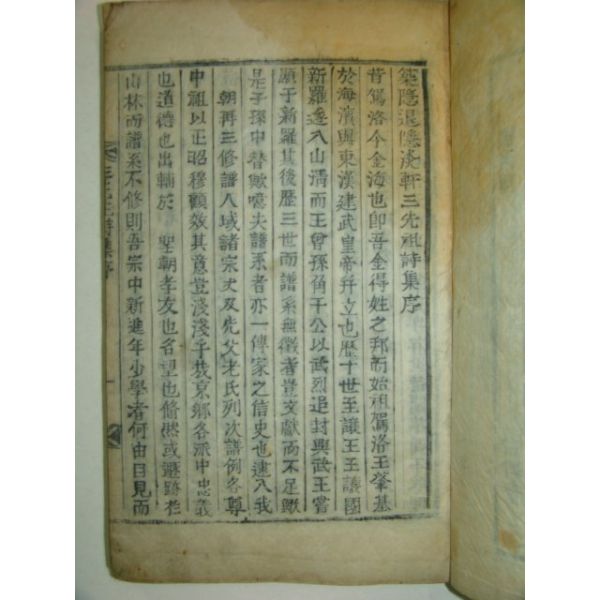 築隱退隱淺軒三先祖詩集序
昔駕洛今金海也卽吾金得姓之邦而始祖駕洛王肇基
於海濱與東漢建武皇帝幷立也歷十世至讓王王讓國
新羅遂入山淸而王曾孫角干公以武烈追封興武王嘗
顯于新羅其後歷三世而譜系無徵者豈文獻而不足歟
是子孫中替歟噫夫譜系者亦一傳家之信史也逮入我
朝再三修譜八域諸宗丈及先父老氏列次譜例各尊
中祖以正昭穆顧效其意豈淺淺乎哉京鄕各派中忠義
也道德也出輔於 聖朝孝友也名望也翛然或遯跡於
山林而譜系不修則吾宗中新進年少學者何由目見而
三先生詩集序 一